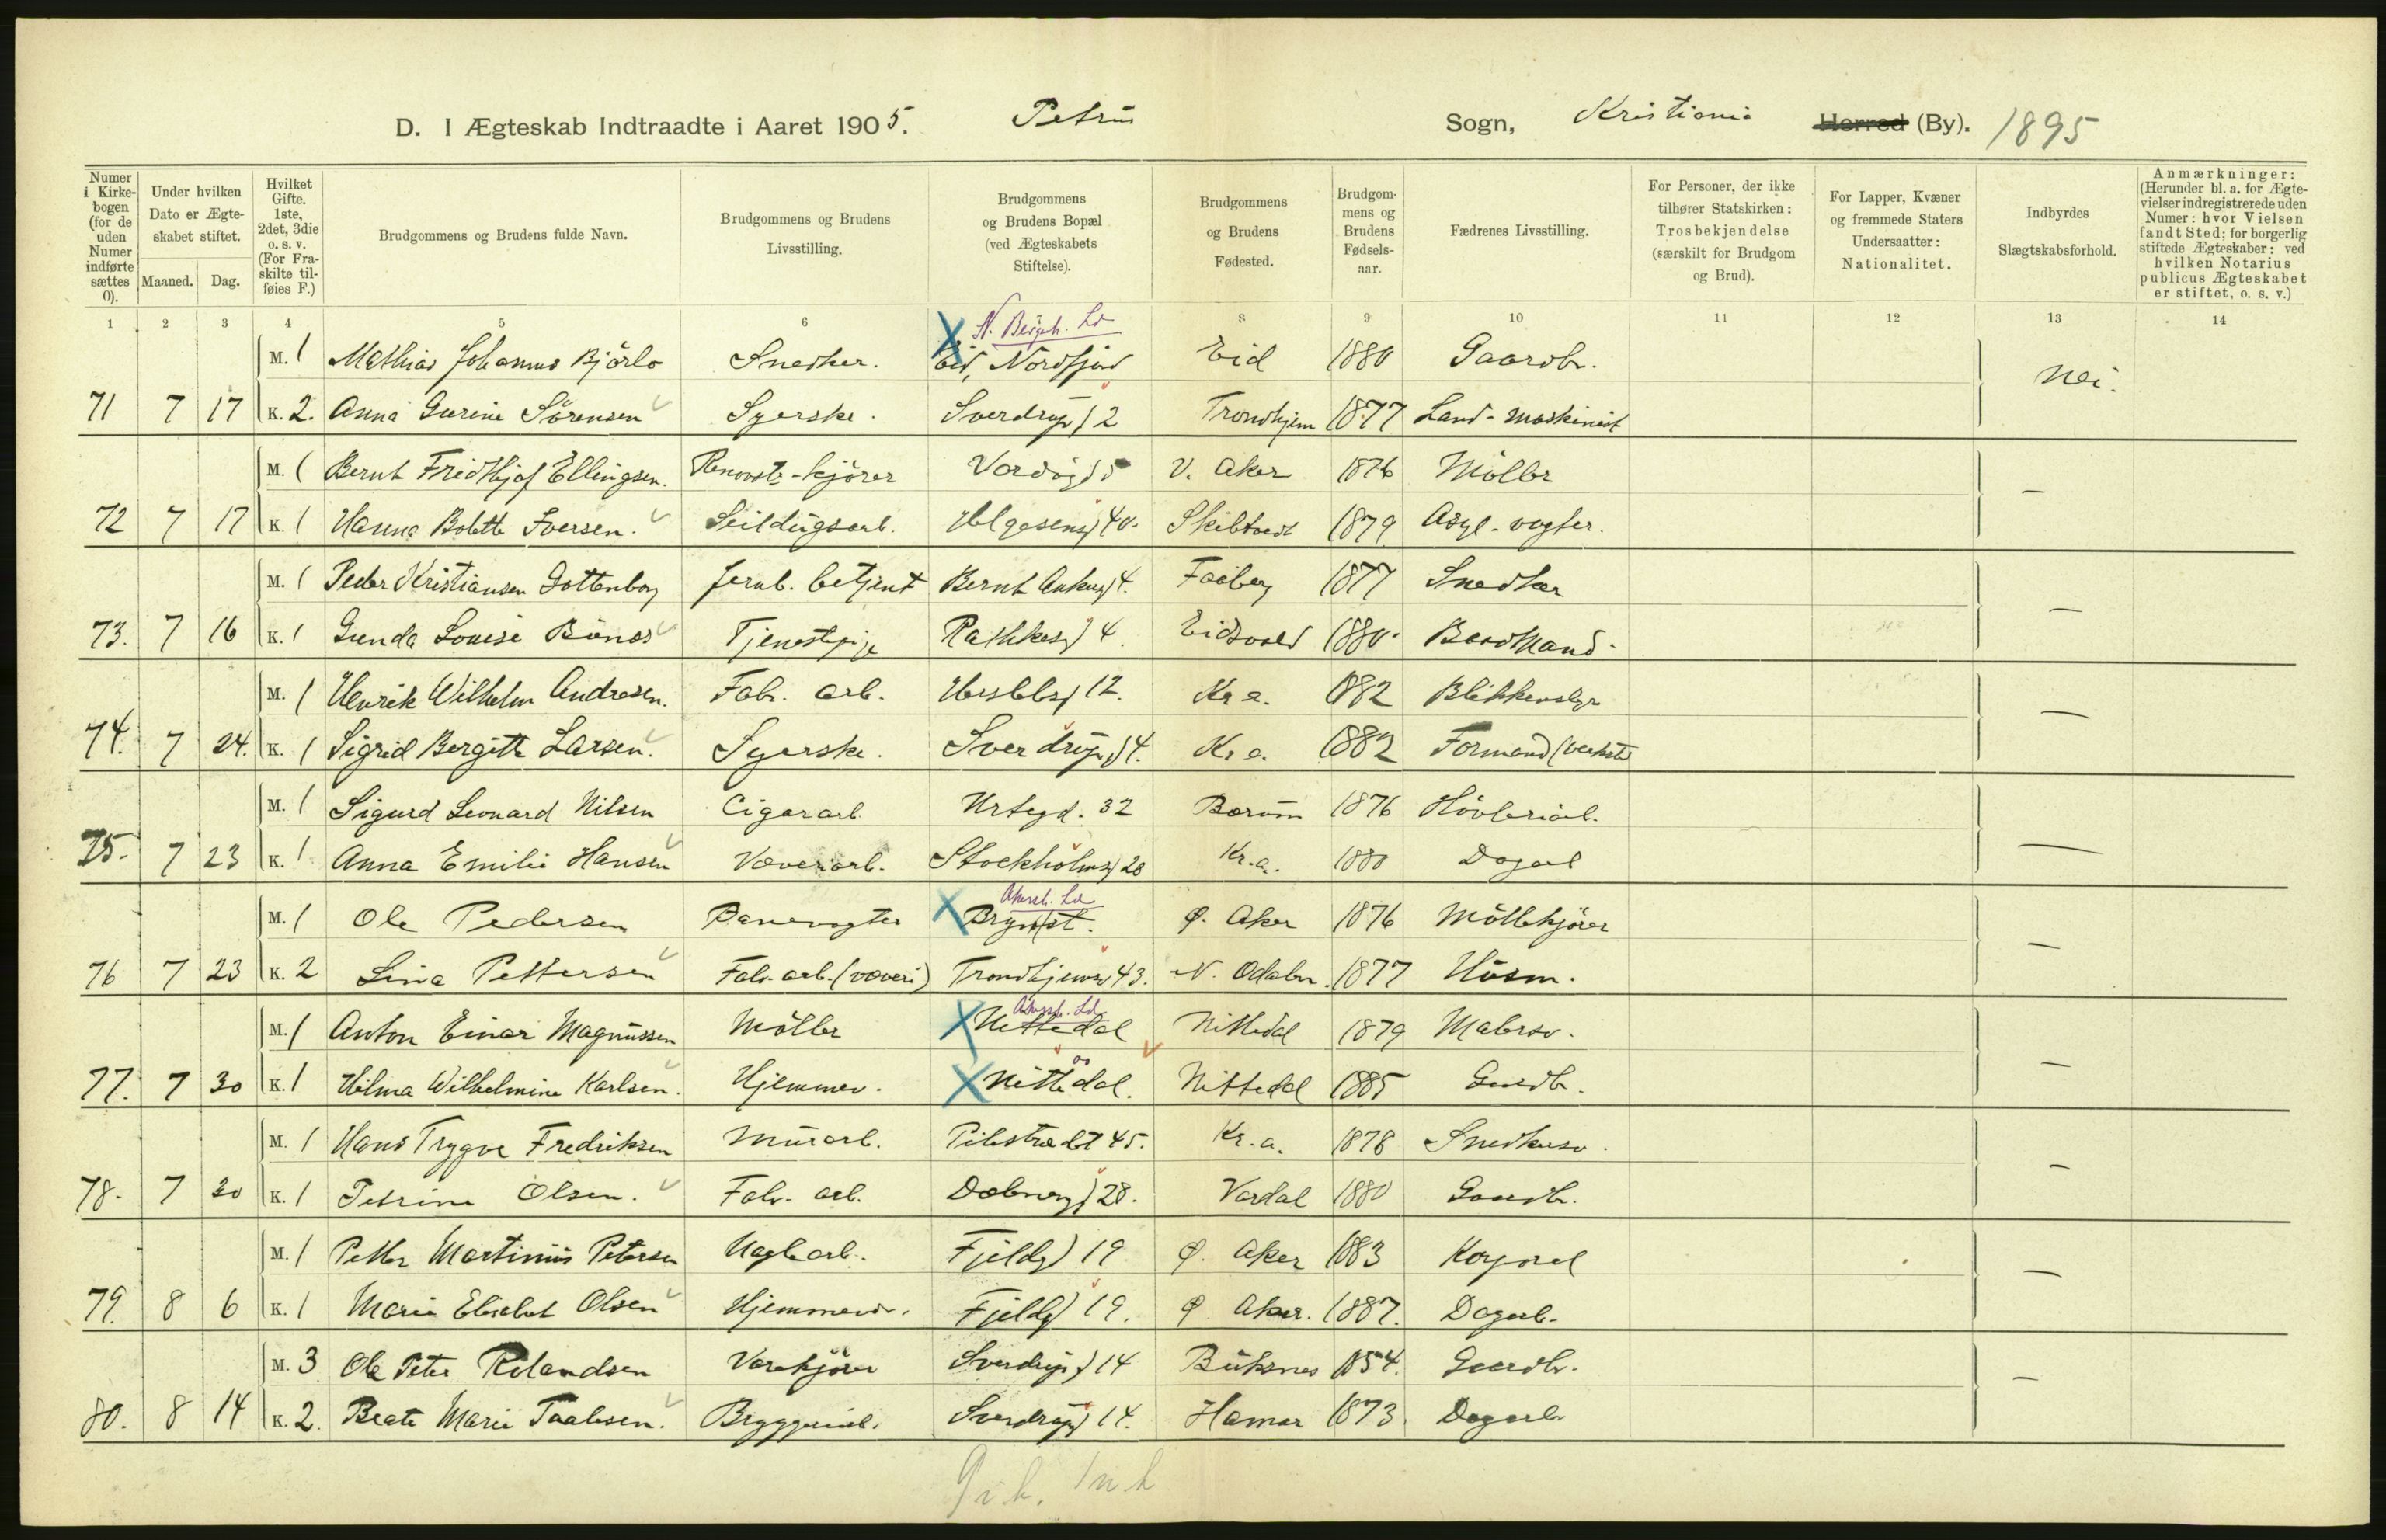 D. I Ægteskab Indtraadte i Aaret 1905. Petrus Sogn, Kristiania Herred (By). 1895
Numer i Kirkebogen (for de uden Numer indførte sættes 0).
Under hvilken Dato er Ægteskabet stiftet.
Maaned. Dag.
Hvilket Gifte. 1ste, 2det, 3die o. s. v. (For Fraskilte tilføies F.)
Brudgommens og Brudens fulde Navn.
Brudgommens og Brudens Livsstilling.
Brudgommens og Brudens Bopæl (ved Ægteskabets Stiftelse).
Brudgommens og Brudens Fødested.
Brudgommens og Brudens Fødselsaar.
Fædrenes Livsstilling.
For Personer, der ikke tilhører Statskirken: Trosbekjendelse (særskilt for Brudgom og Brud).
For Lapper, Kvæner og fremmede Staters Undersaatter: Nationalitet.
Indbyrdes Slægtskabsforhold.
Anmærkninger: (Herunder bl. a. for Ægtevielser indregistrerede uden Numer: hvor Vielsen fandt Sted; for borgerlig stiftede Ægteskaber: ved hvilken Notarius publicus Ægteskabet er stiftet, o. s. v.)
1 2 3 4 5 6 8 9 10 11 12 13 14
N. Bergh. Ld
M. 1 Mathias Johannes Bjørlo Snedker. Eid, Nordfjord Eid 1880 Gaardbr. Nei.
71 7 17 K. 2. Anna Gurine Sørensen Syerske. Sverdrupsg 2 Trondhjem 1877 Land-maskinist
M. 1 Bernt Fridthjof Ellingsen. Renovats-kjører Vardøg 5 V. Aker 1876 Møller —
72 7 17 K. 1 Hanna Bolette Iversen. Seildugsarb. Helgesensg 40. Skibtvedt 1879 Asyl-vogter.
M. 1 Peder Kristiansen Dottenborg Jernb. betjent Bernt Ankersg 4. Faaberg 1877 Snedker —
73. 7 16 K. 1 Gunda Louise Bønes Tjenestpige Rathkesg 4. Eidsvold 1880. Baadmand.
M. 1 Henrik Wilhelm Andresen. Fabr. arb. Herslebsg 12. Kr a. 1882 Blikkenslgr —
74. 7 24. K. 1 Sigrid Bergitte Larsen. Syerske. Sverdrupsg 4. Kr a. 1882 Formand (værksted
M. 1 Sigurd Leonard Nilsen Cigararb. Urtegd. 32 Bærum 1876 Høvleriarb. —
75. 7 23 K. 1 Anna Emilie Hansen Væveriarb. Stockholmsg 28 Kr.a. 1880 Dagarb
Akersh. Ld
M. 1 Ole Pedersen Banevogter Brynst. Ø. Aker 1876 Møllekjører —
76 7 23 K. 2 Lina Pettersen Fabr. arb. (væveri) Trondhjemsv 43. N. Odalen. 1877 Husm.
Akersh. Ld
M. 1 Anton Einar Magnussen Møller Nittedal Nittedal 1879 Malersv. —
77. 7 30 K. 1 Hilma Wilhelmine Karlsen. Hjemmev. Nittedal. Nittedal 1885 Gaardb.
M. 1 Hans Trygve Fredriksen Murarb. Pilestrædet 45. Kr.a. 1878 Snedkersv. —
78. 7 30 K. 1 Petrine Olsen. Fabr. arb. Dælenengg 28. Vardal 1880 Gaardb.
M. 1 Petter Martinius Petersen Naglearb. Fjeldg 19 Ø. Aker 1883 Korporal —
79. 8 6 K. 1 Marie Elisebet Olsen Hjemmevær. Fjeldg 19. Ø Aker. 1887. Dagarb.
M. 3 Ole Peter Rolandsen Varekjører Sverdrupsg 14 Buksnes 1854. Gaardbr. —
80. 8 14 K. 2. Beate Marie Taalesen. Bryggeriarb. Sverdrupsg 14. Hamar 1873. Dagarb